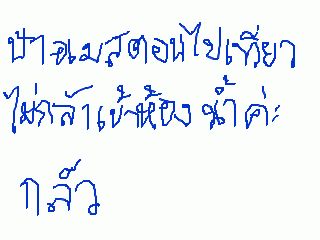 ป้าจเมสตอนไปเที่ยว
ไม่กล้าเข้าห้องน้ำค่ะ
กลัว